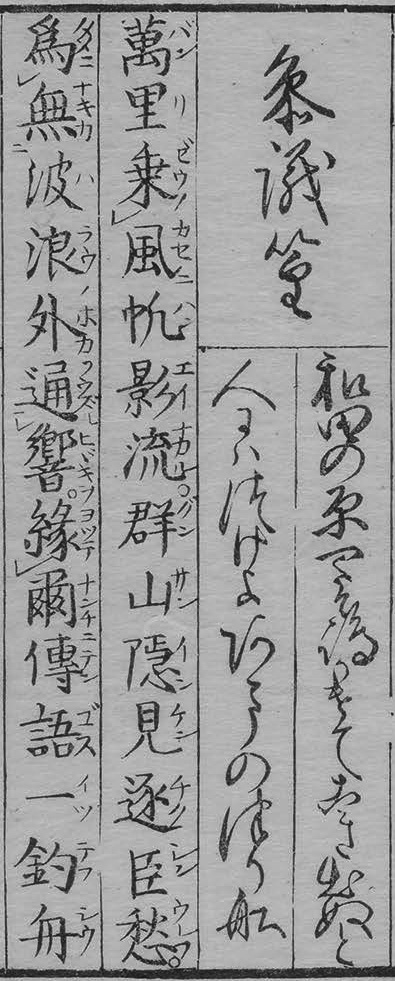 参議篁
和田の原八十嶋かけてこき出ぬと
人にハつけよあまのつり舩
萬里乗風帆影流。群山隠見逐臣愁。
為無波浪外通響。縁爾傳語一釣舟